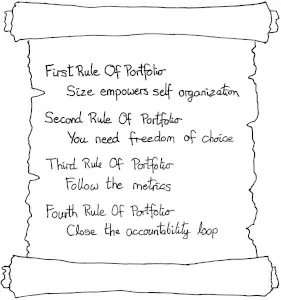 First Rule Of Portfolio
Size empowers self organization
Second Rule Of Portfolio
You need freedom of choice
Third Rule Of Portfolio
Follow the metrics
Fourth Rule Of Portfolio
Close the accountability loop